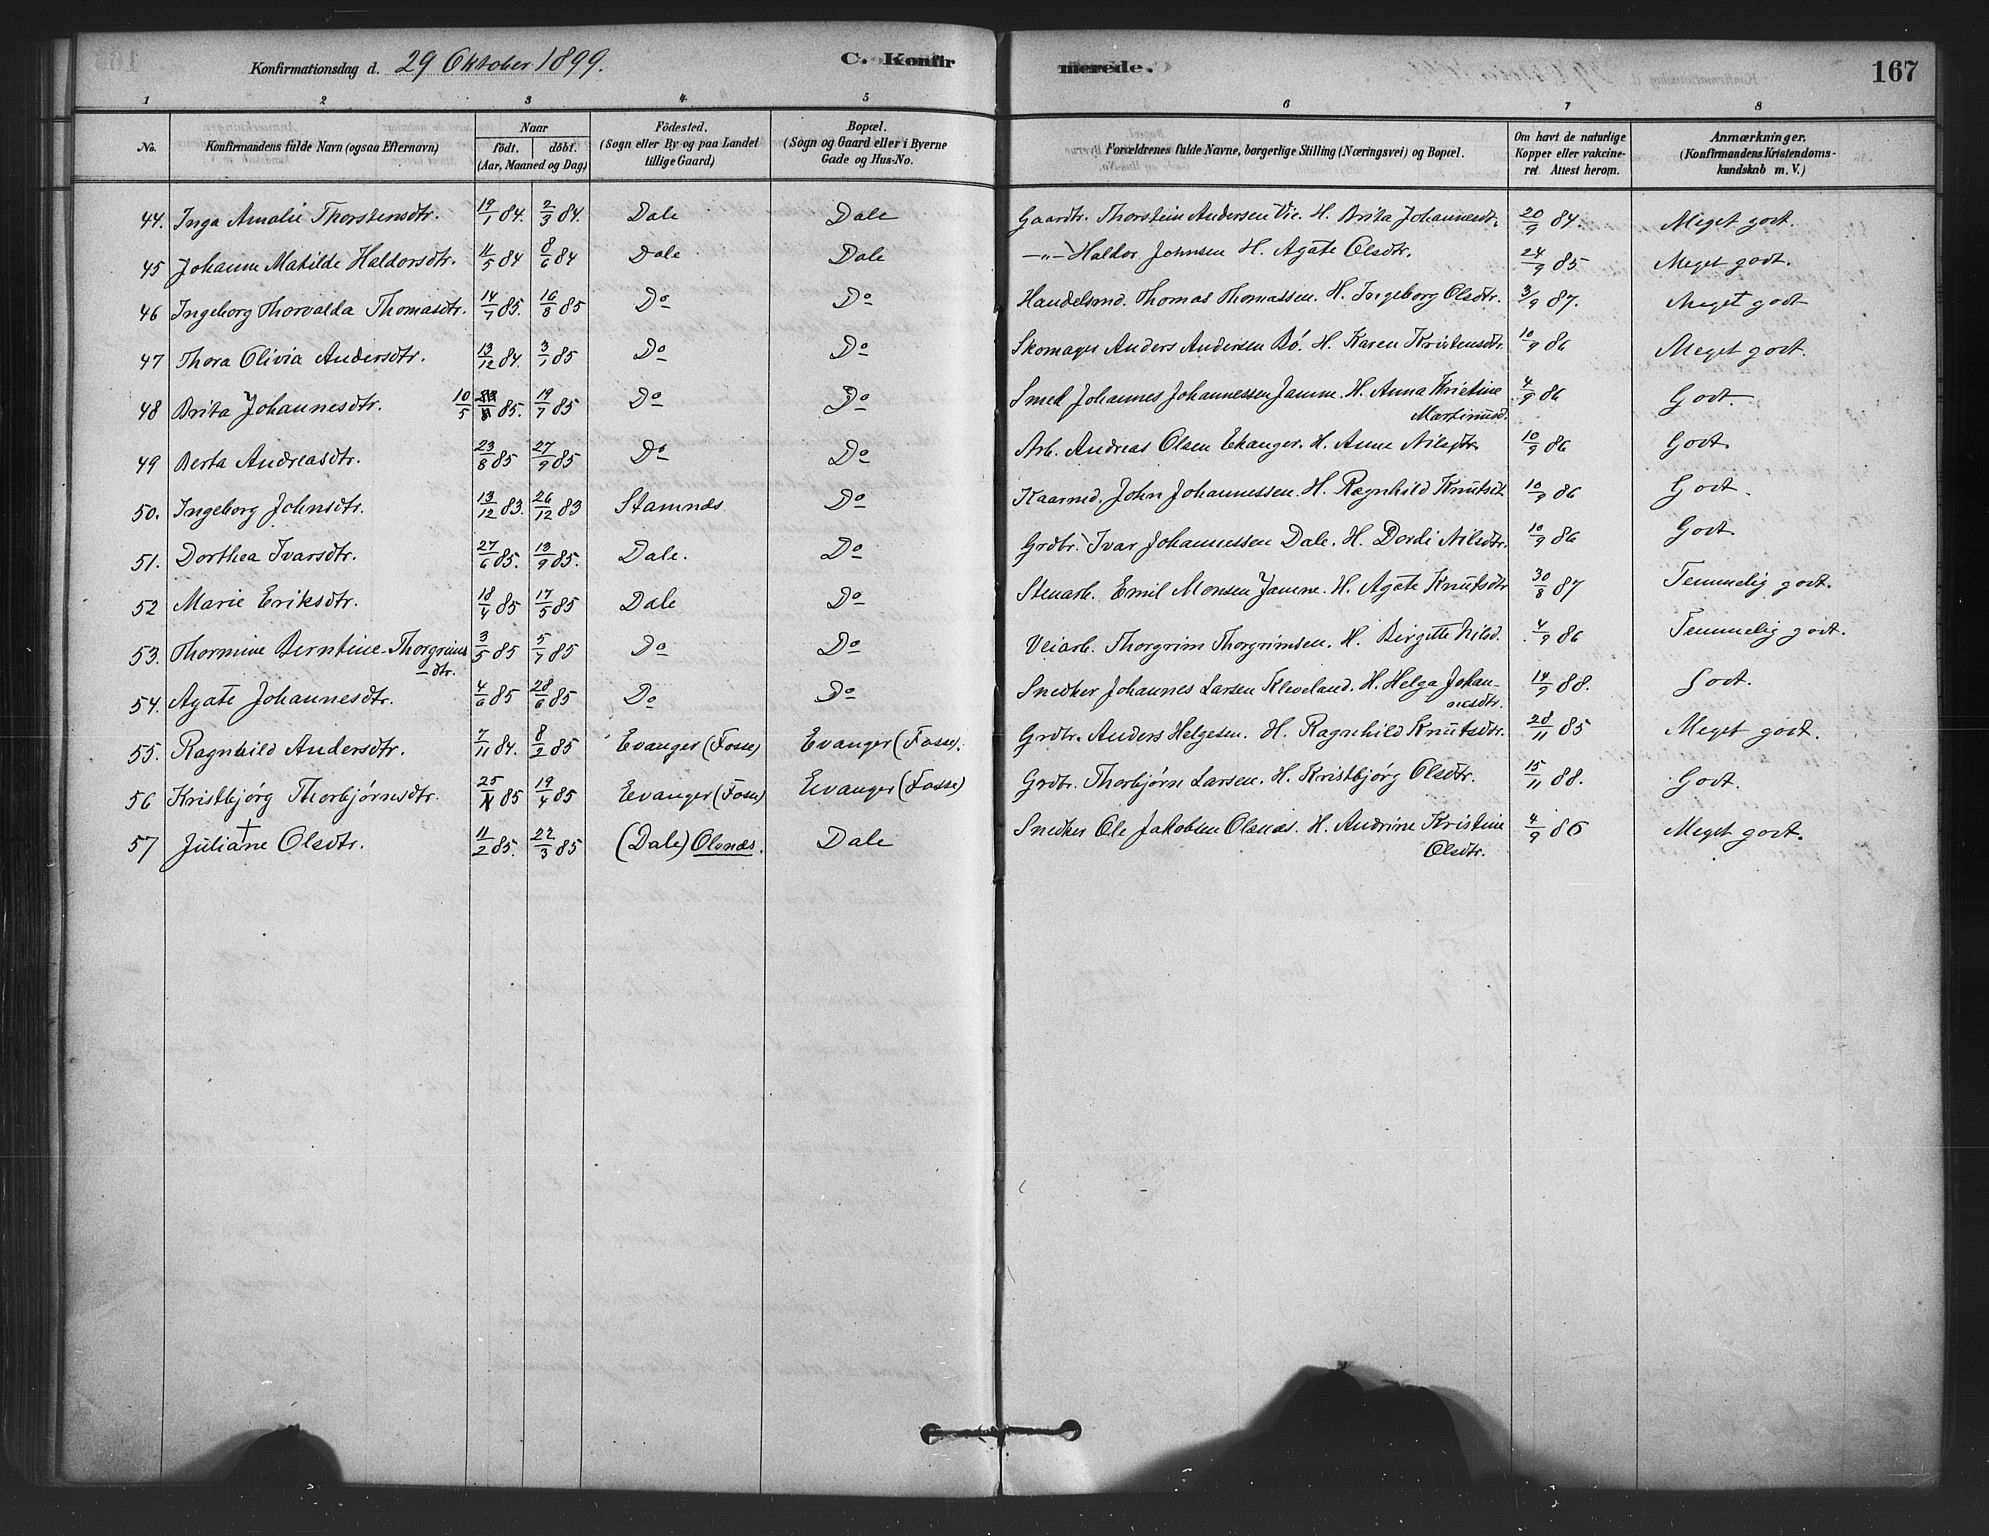 Konfirmationsdag d. 29 Oktober 1899. C. Konfir merede. 167
1 2 3 4. 5 6 7 8
No. Konfirmandens fulde Navn (ogsaa Efternavn) Naar födt. döbt. (Aar, Maaned og Dag) Födested. (Sogn eller By og paa Landet tillige Gaard) Bopæl. (Sogn og Gaard eller i Byerne Gade og Hus-No. Forældrenes fulde Navne, borgerlige Stilling (Næringsvei) og Bopæl. Om havt de naturlige Kopper eller vakcineret Attest herom. Anmærkninger. (Konfirmandens Kristendomskundskab m. V.)
44. Inga Amalie Thorstensdtr. 19/1 84. 2/3 84. Dale Dale Gaardbr. Thorstein Andersen Vie. H. Brita Johannesdt. 20/9 84. Meget godt.
45 Johanne Matilde Haldorsdtr. 11/5 84 8/6 84 Dale Dale —„— Haldor Johnsen H. Agate Olsdtr. 24/9 85 Meget godt.
46 Ingeborg Thorvalda Thomasdtr. 14/7 85. 16/8 85 Do Do Handelsmd. Thomas Thomassen. H. Ingeborg Olsdtr. 3/9 87. Meget godt
47 Thora Olivia Andersdtr. 13/12 84. 3/7 85 Do Do Skomager Anders Andersen Bö. H. Karen Kristensdtr. 10/9 86 Meget godt.
48 Brita Johannesdtr. 10/5 85. 19/7 85 Do Do Smed Johannes Johannessen Jamne. H. Anna Kristine 4/9 86 Godt.
Martinusd.
49 Berta Andreasdtr. 23/8 85 27/9 85 Do Do Arb. Andreas Olsen Ekanger. H. Anne Nilsdtr. 10/9 86 Godt.
50. Ingeborg Johnsdtr. 13/12 83. 26/12 83 Stamnes Do Kaarmd. John Johannessen. H. Ragnhild Knutsd. 10/9 86 Godt.
51. Dorthea Ivarsdtr. 27/6 85. 13/9 85. Dale. Do Grdbr. Ivar Johannessen Dale. H. Dordi Nilsdtr. 10/9 86 Godt.
52 Marie Eriksdtr. 18/4 85 17/5 85 Dale Do Stenarb. Emil Monsen Jamne. H. Agate Knutsdtr 30/8 87 Temmelig godt.
53. Thormine Berntine Thorgrims 3/5 85 5/7 85 Do Do Veiarb. Thorgrim Thorgrimsen. H. Birgitte Nilsd. 4/9 86 Temmelig godt.
—dtr.
54. Agate Johannesdtr. 4/6 85 28/6 85 Do Do Snedker Johannes Larsen Kleveland. H. Helga Johan- 14/9 88. Godt.
nesdtr.
55. Ragnhild Andersdtr. 7/11 84. 8/2 85 Evanger (Fosse) Evanger (Fosse). Grdbr. Anders Helgesen. H. Ragnhild Knutsdtr. 28/11 85 Meget godt.
56 Kristbjørg Thorbjørnsdtr. 25/1 85 19/4 85 Evanger (Fosse) Evanger (Fosse) Grdbr. Thorbjørn Larsen. H. Kristbjørg Olsdtr. 15/11 88. Godt.
57 Juliane Olsdtr. 11/2 85. 22/3 85 (Dale) Olsnæs. Dale Snedker Ole Jakobsen Olsnæs. H. Andrine Kristine 4/9 86 Meget godt.
Olsdtr.